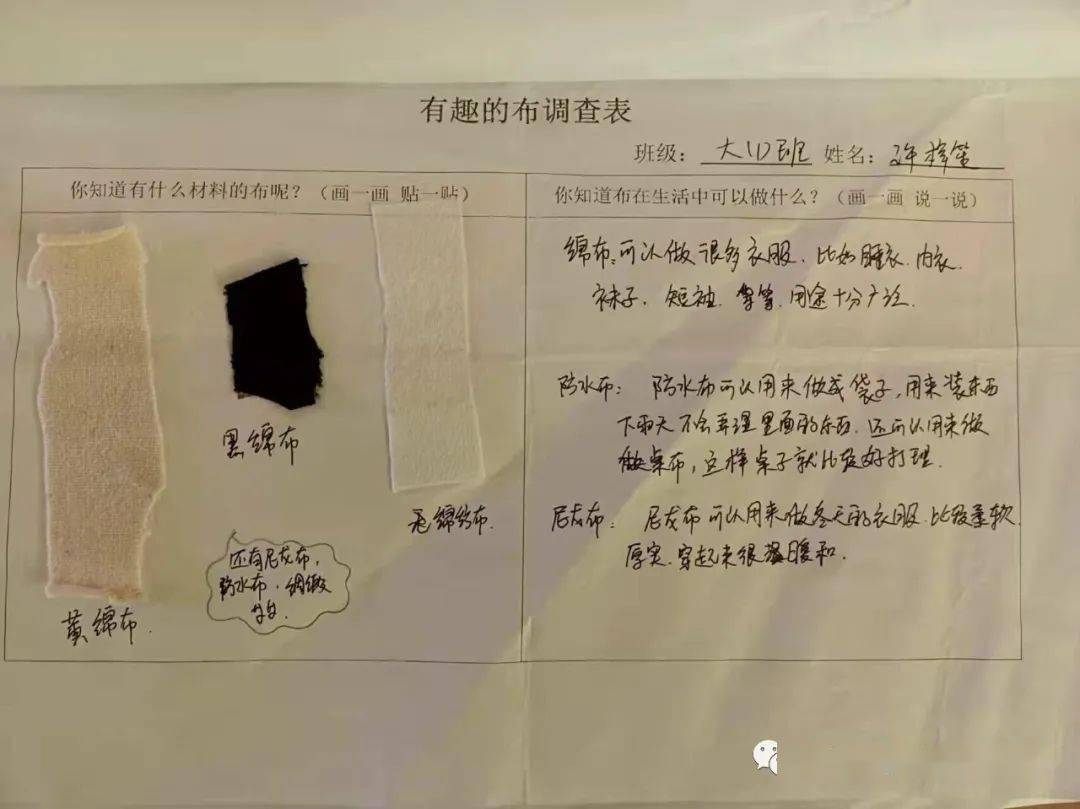 有趣的布调查表
班级：大(1)班 姓名：许梓笙
你知道有什么材料的布呢？（画一画 贴一贴）
你知道布在生活中可以做什么？（画一画 说一说）
黑绵布
毛绵纱布.
还有尼龙布，
防水布、绸缎
等等.
黄绵布.
绵布：可以做很多衣服、比如睡衣、内衣、
袜子、短袖、等等，用途十分广泛.
防水布： 防水布可以用来做成袋子，用来装东西
下雨天不会弄湿里面的东西，还可以用来做
做桌布，这样桌子就比较好打理.
尼龙布： 尼龙布可以用来做冬天的衣服，比较柔软、
厚实，穿起来很温暖和.